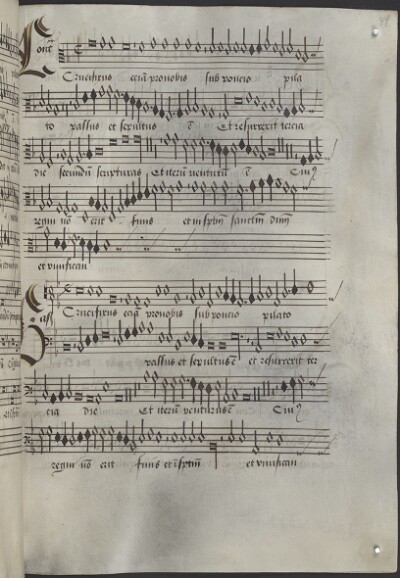 Cont
Crucifixus eciā pronobis sub poncio pila
to passus et sepultus ē Et resurrexit tercia
die secundū scripturas Et iterū venturū ē Cuiꝰ
regni nō erit finis et in sp̄m sanctū dn̄m
et vivifican
Crucifixus eciā pronobis sub poncio pilato
passus et sepultus ē et resurrexit ter
cia die Et iterū venturus ē Cuiꝰ
regni nō erit finis et ī sp̄m et vivifican